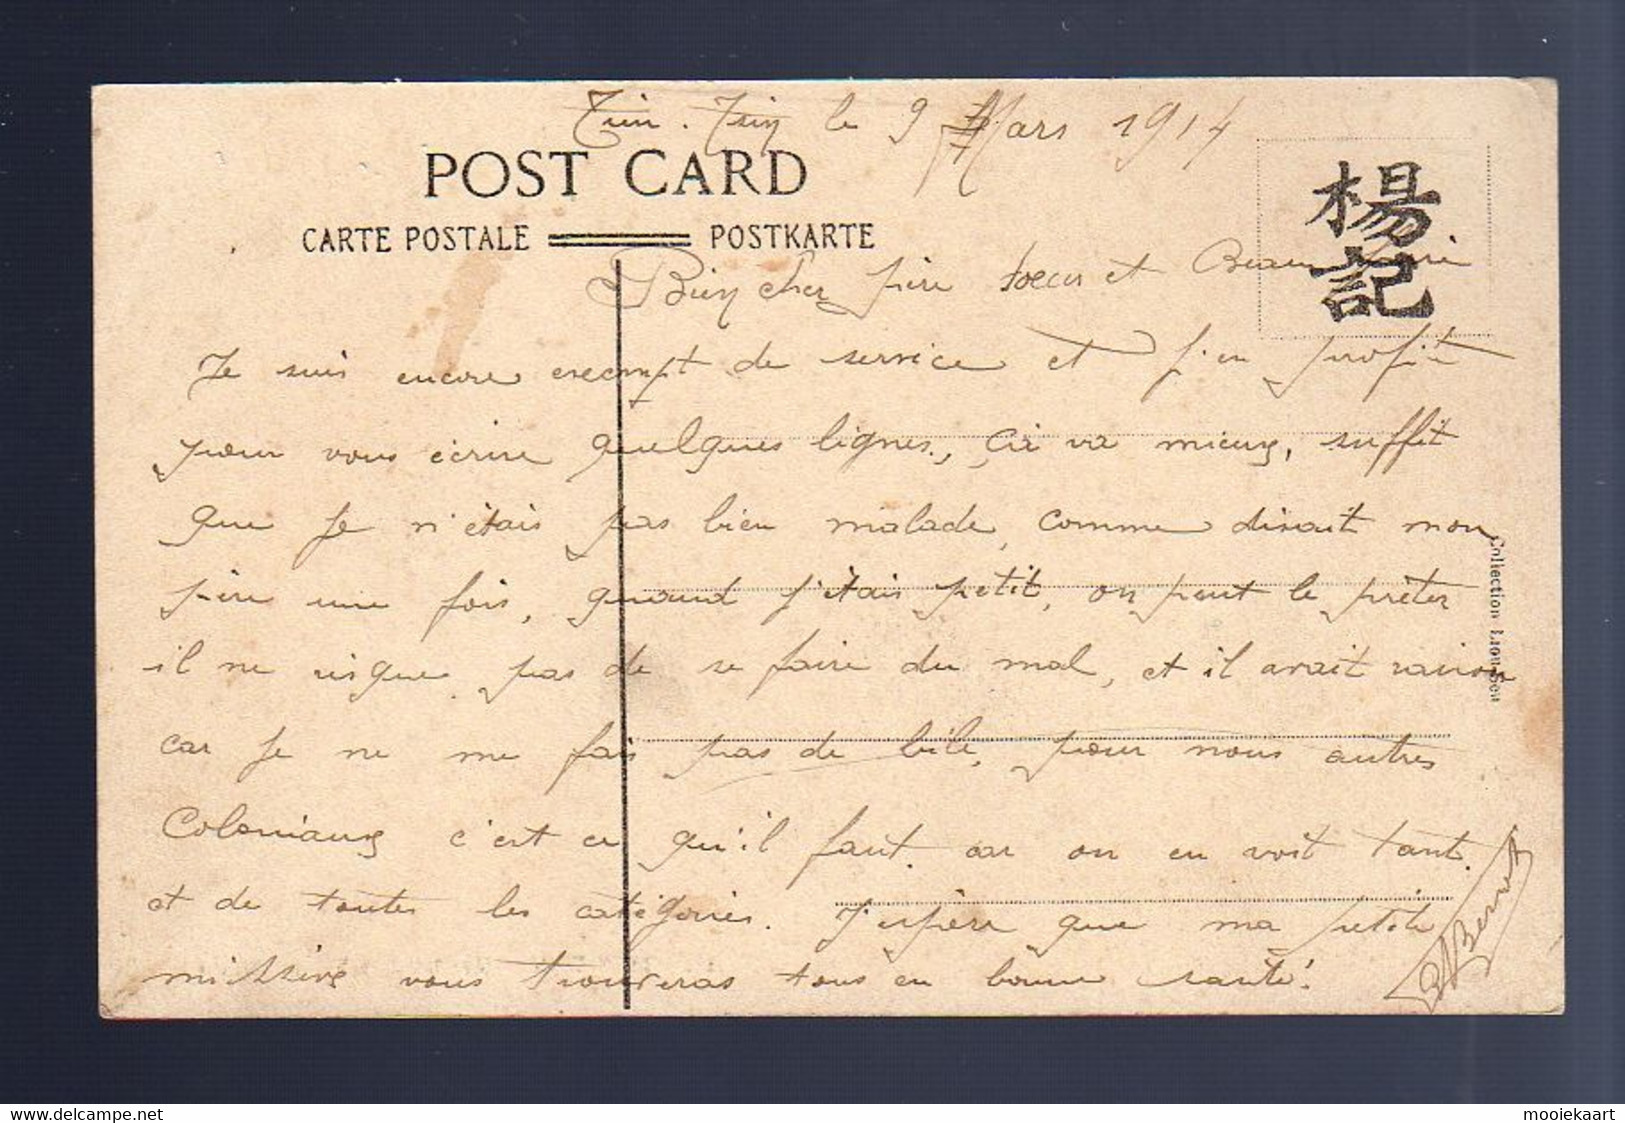 Tien-Tsin le 9 Mars 1914
POST CARD
CARTE POSTALE POSTKARTE
楊記
Bien Cher père soeur et Beau
Je suis encore exempt de service et j'en profite
pour vous écrire quelques lignes, ça va mieux, suffit
que je n'étais pas bien malade, comme disait mon
père une fois, quand j'étais petit, on peut le prêter
il ne risque pas de se faire du mal, et il avait raison
car je ne me fais pas de bile, pour nous autres
Coloniaux c'est ce qu'il faut. car on en voit tant.
et de toutes les catégories. J'espère que ma petite
missive vous trouveras tous en bonne santé!
Bernet
Collection Liou Sen
delcampe.net
mooiekaart